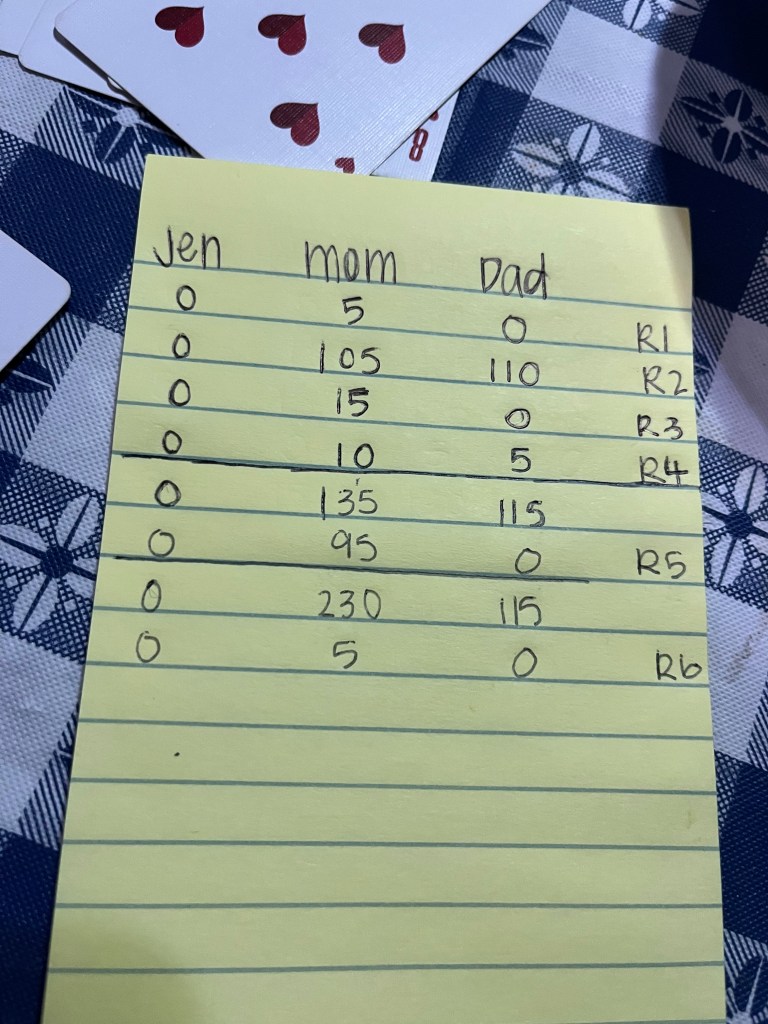 8
Jen mom Dad
0 5 0 R1
0 105 110 R2
0 15 0 R3
0 10 5 R4
0 135 115
0 95 0 R5
0 230 115
0 5 0 R6